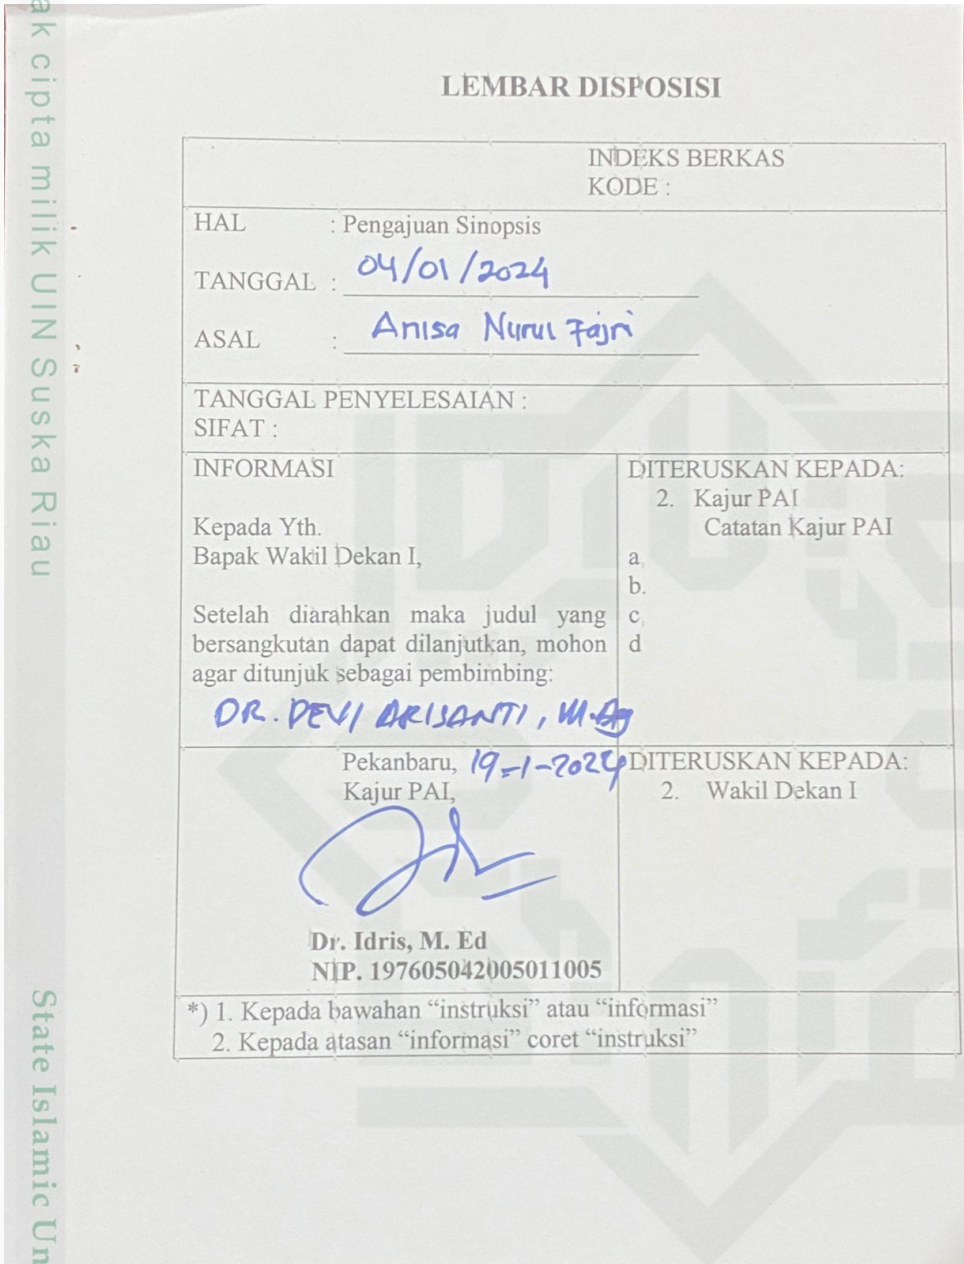 ak cipta milik UIN Suska Riau
State Islamic Un
LEMBAR DISPOSISI
INDEKS BERKAS
KODE :
HAL : Pengajuan Sinopsis
TANGGAL : 04/01/2024
ASAL : Anisa Nurul Fajri
TANGGAL PENYELESAIAN :
SIFAT :
INFORMASI
Kepada Yth.
Bapak Wakil Dekan I,
Setelah diarahkan maka judul yang
bersangkutan dapat dilanjutkan, mohon
agar ditunjuk sebagai pembimbing:
DR. DEVI ARISANTI, M.Ag
DITERUSKAN KEPADA:
2. Kajur PAI
Catatan Kajur PAI
a.
b.
c.
d
Pekanbaru, 19-1-2024
Kajur PAI,
Dr. Idris, M. Ed
NIP. 197605042005011005
DITERUSKAN KEPADA:
2. Wakil Dekan I
*) 1. Kepada bawahan “instruksi” atau “informasi”
2. Kepada atasan “informasi” coret “instruksi”